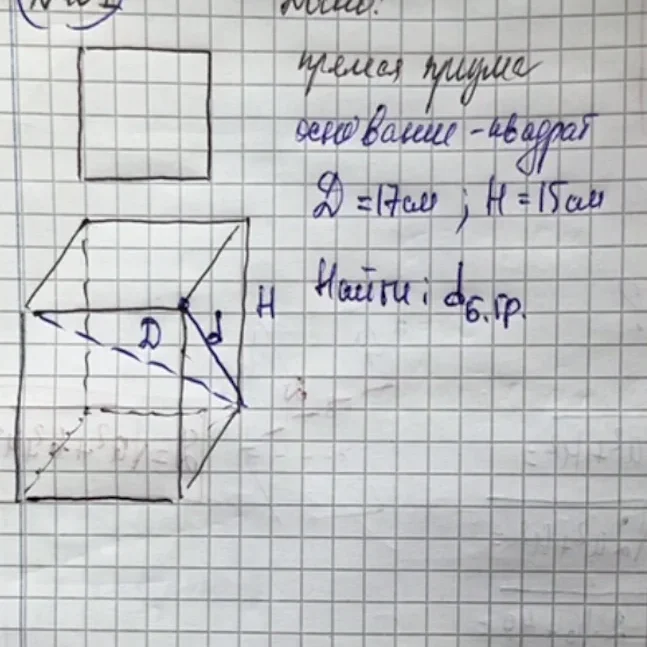 Дано:
прямая призма
основание - квадрат
D = 17 см ; H = 15 см
H
Найти: d б.гр.
D
d